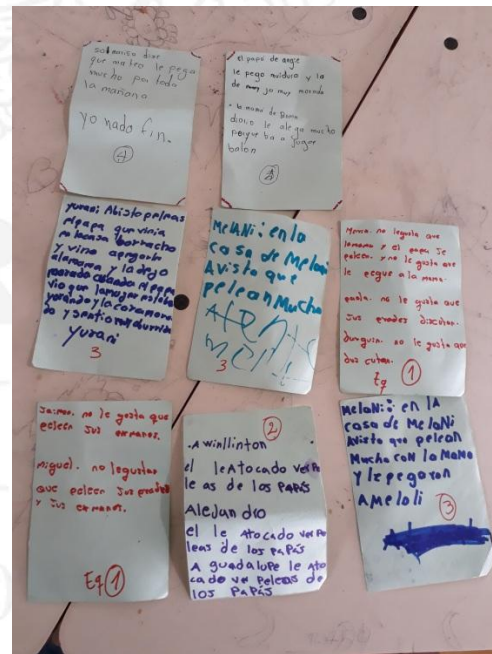 solansiso dise
que mateo le pega
mucho por toda
la mañana
yo nado fin.
4
el papá de angie
le pego mui duro y la
de jo muy morada
la mama de Brando
dioio le alega mucho
porque ba a jugar
balon
yurani Abisto peleas
el papa que vinia
borracho
y vino apegarle
alamama y la dejo
morada
vio que
yorando y la cara mora
da y santiornó durmiendo
yurani
3
MelANi: en la
casa de Melani
Avisto que
pelean Mucho
3
no legusta que
lamama y el papa se
peleen. y no le gusta que
le pegue a la mama.
paula. no le gusta que
sus prades discutan.
no le gusta que
discutan.
Eq 1
Jaimer. no le gusta que
peleen sus ermanos.
miguel. no legustar
que peleen sus prades
y sus ermanos.
Eq 1
2
.A winllinton
el le Atocado ver Pe
le as de los PAPás
Alejandro
el le Atocado ver Pe
leas de los PaPás
A guadalupe le ato
cado ver Peleas de
los PaPás
MelaNi: en lA
casa de MelaNi
Avisto que pelean
Mucho coN la MaMá
y le pegaron
A Meloli
3